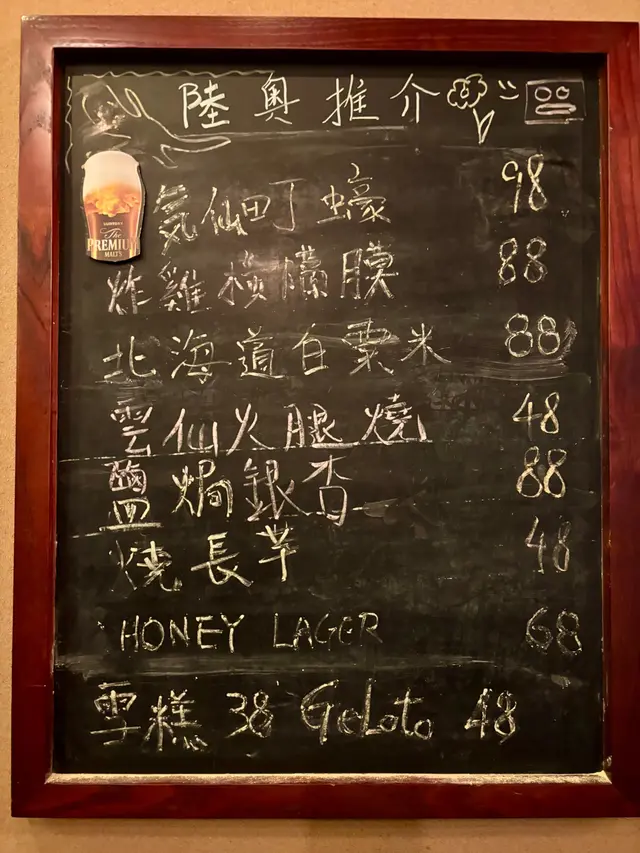 陸奥推介
The
PREMIUM
MALT'S
気仙町蠔 98
炸雞橫膈膜 88
北海道白粟米 88
雲仙火腿燒 48
鹽焗銀杏 88
燒長芋 48
HONEY LAGER 68
雪糕 38 GeLato 48